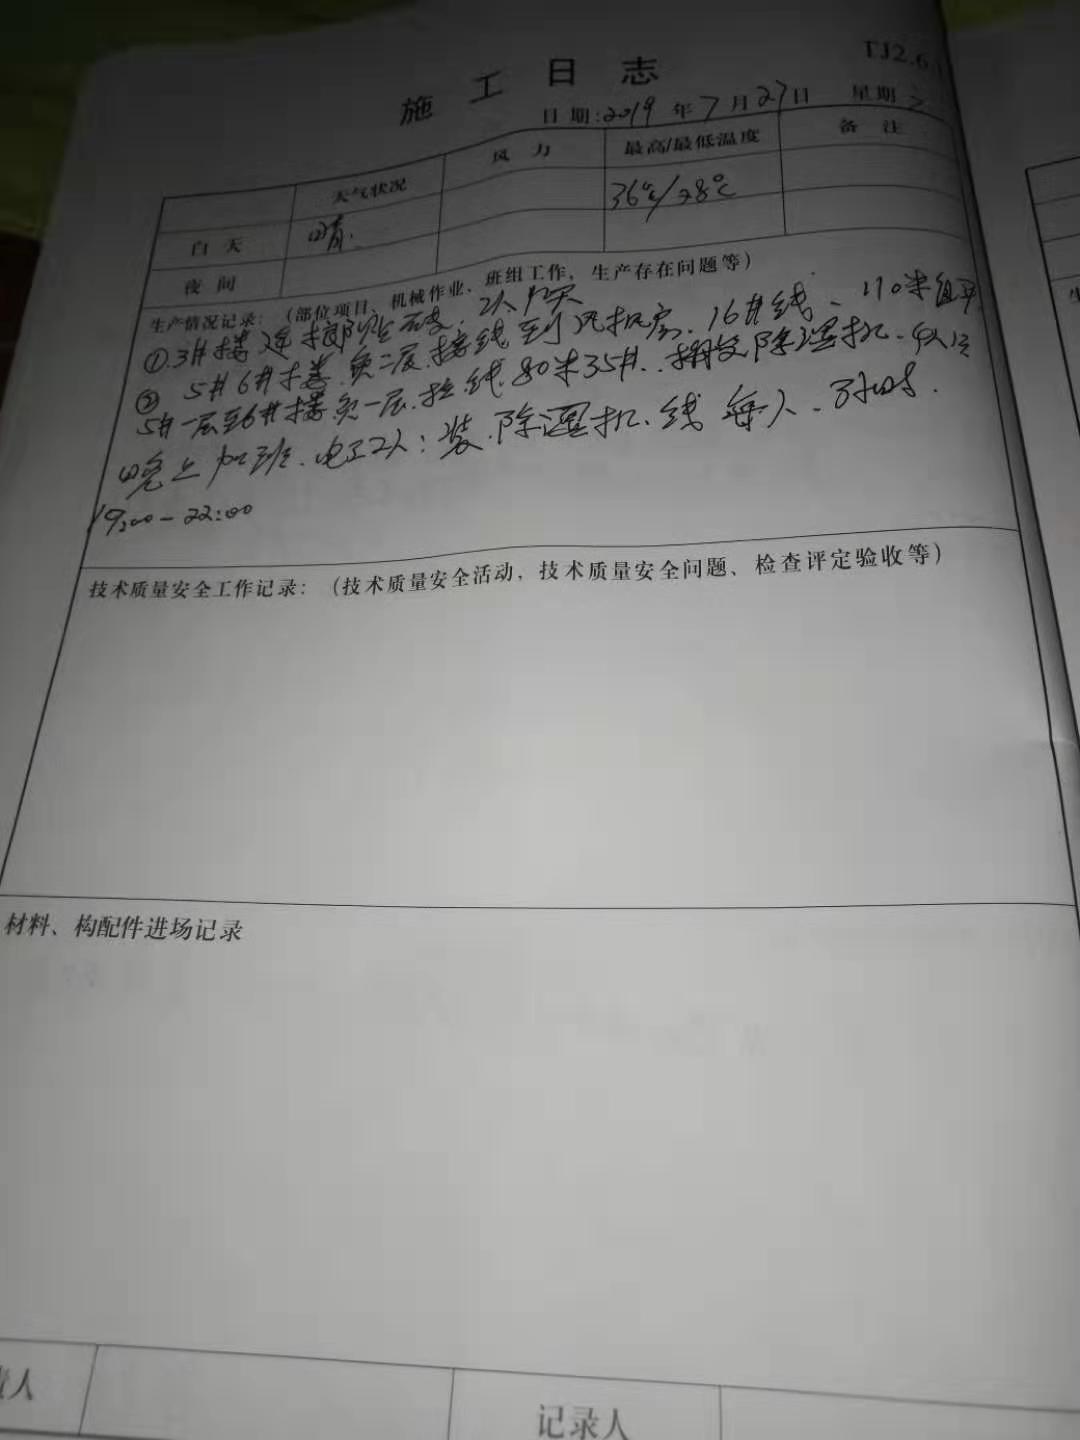 TJ2.6
施工日志
日期:2019年7月27日 星期
天气状况 风力 最高/最低温度 备注
白天 晴. 36℃/28℃
夜间
生产情况记录:(部位项目、机械作业、班组工作,生产存在问题等)
①.3#楼连接廊 2人
② 5#6#楼.负二层.接线到风机房.16#线、110米
5#一层至6#楼负一层.拉线.80米35#..搬 除湿机.4人
晚上加班.电工2人:装.除湿机.线 每人.3小时.
19:00-22:00
技术质量安全工作记录:(技术质量安全活动,技术质量安全问题、检查评定验收等)
材料、构配件进场记录
责人 记录人